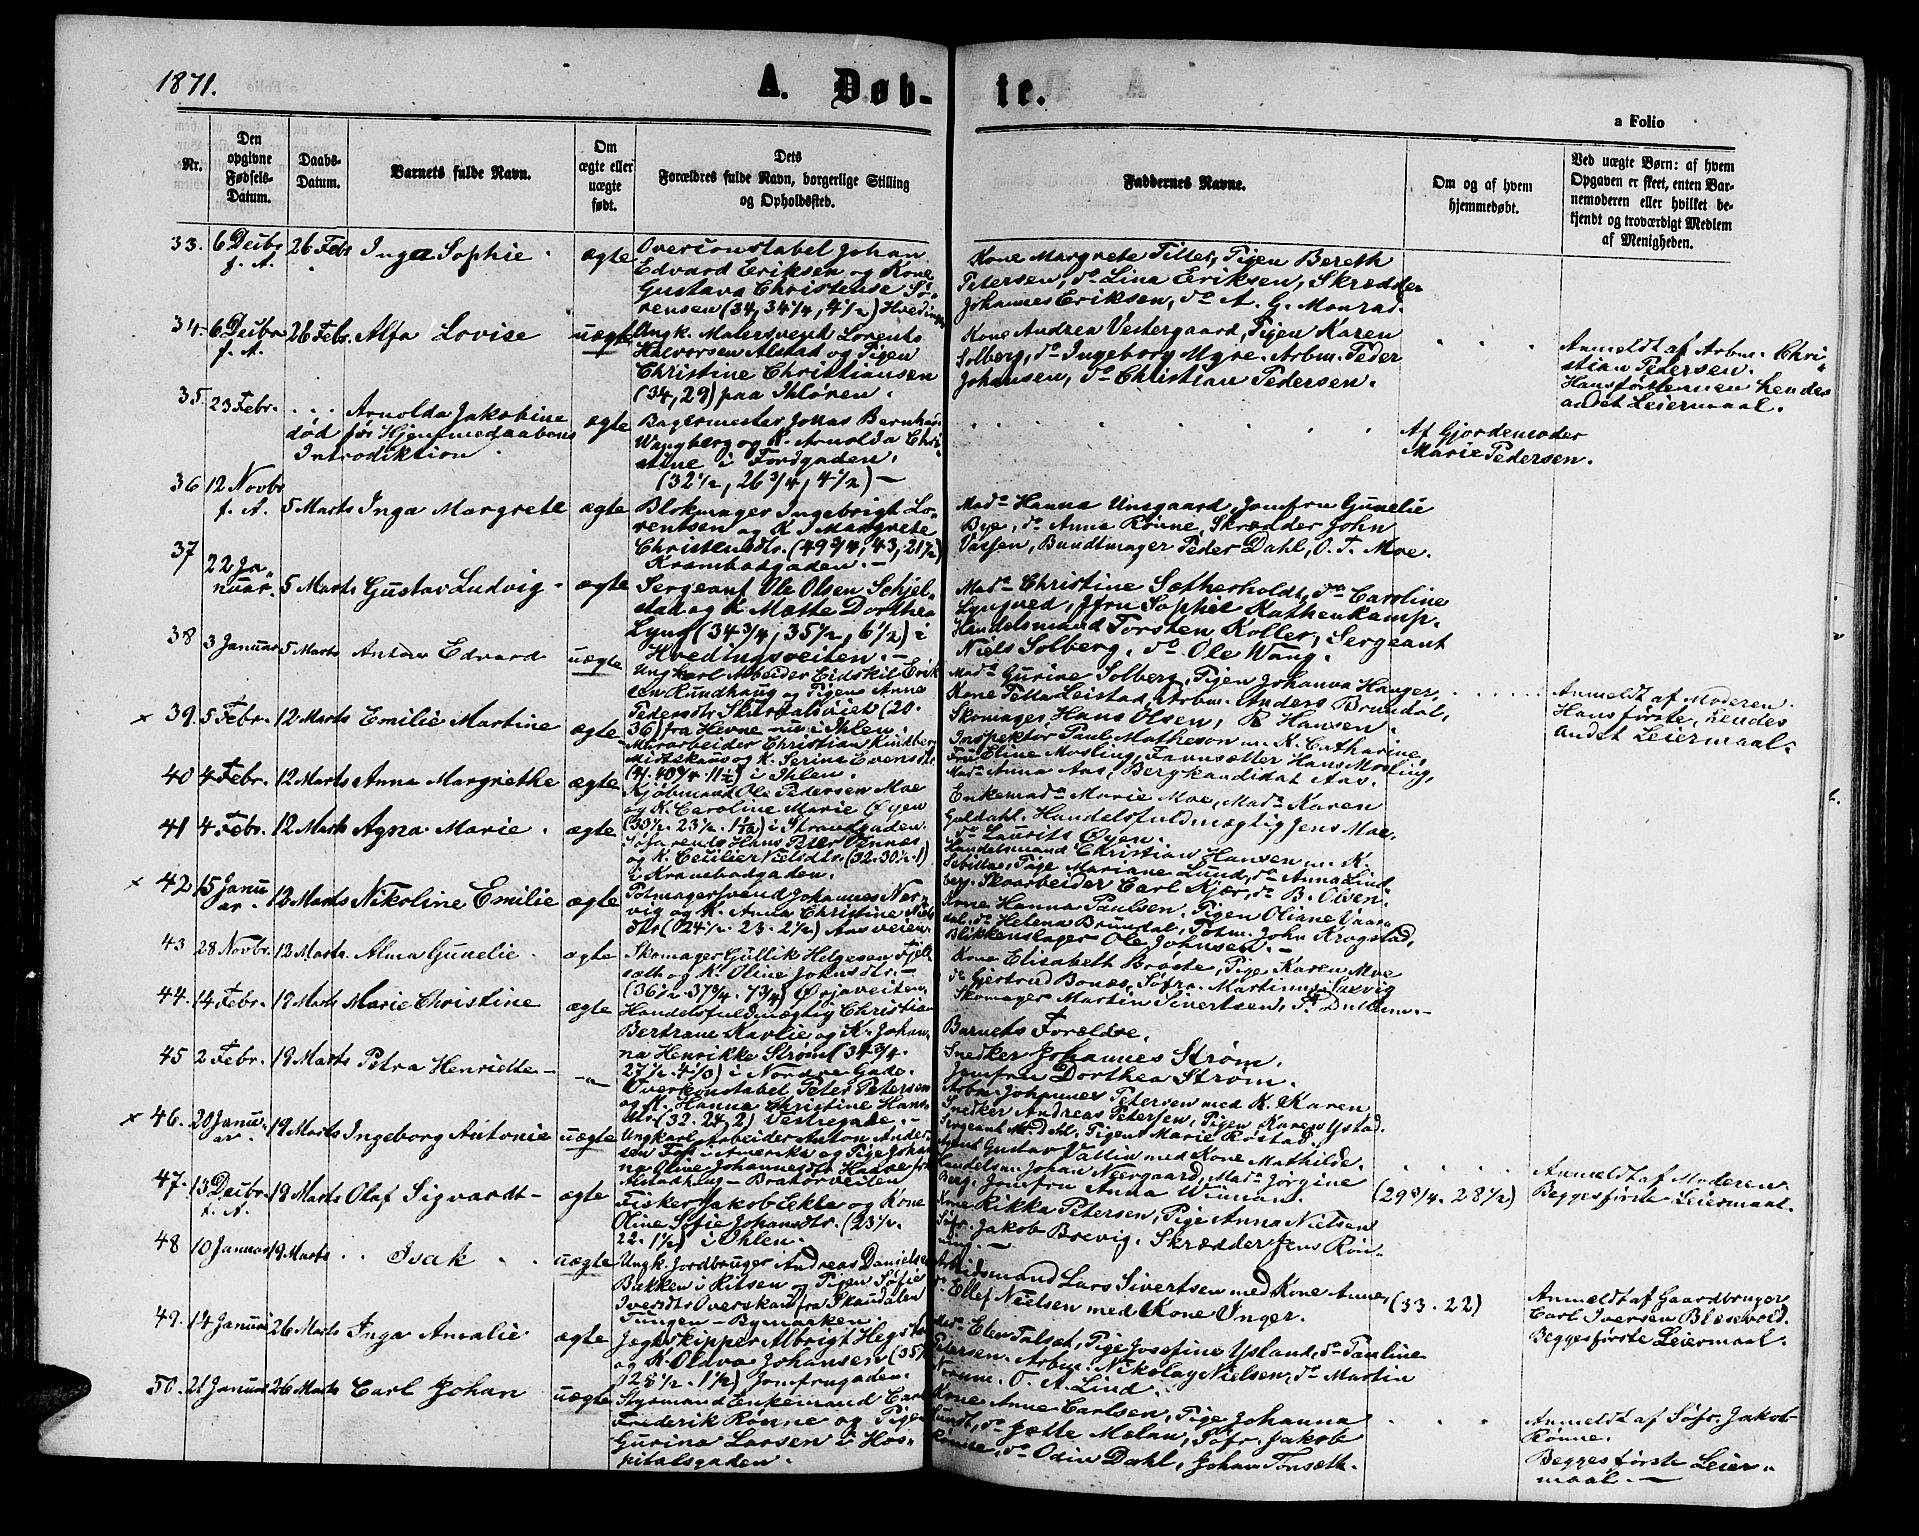 1871.
A. Døb-
te.
a Folio
Nr.
Den
opgivne
Fødsels-
Datum.
Daabs-
Datum.
Barnets fulde Navn.
Om
ægte eller
uægte
født.
Dets
Forældres fulde Navn, borgerlige Stilling
og Opholdssted.
Faddernes Navne.
Om og af hvem
hjemmedøbt.
Ved uægte Børn: af hvem
Opgaven er skeet, enten Bar-
nemoderen eller hvilket be-
kjendt og troværdigt Medlem
af Menigheden.
33. 6 Decbr f. A. 26 Febr Inga Sophie ægte
Overconstabel Johan
Edvard Eriksen og Kone
Gustava Christense Sø-
rensen (34, 34 1/4, 4 1/2)
Kone Margrete Tiller, Pigen Bereth
Petersen, do Lina Eriksen, Skrædder
Johannes Eriksen, do A. G. Monrad.
34. 6 Decbr f. A. 26 Febr. Alfa Lovise uægte
Ungk. Malersvend Lorents
Halvorsen Alstad og Pigen
Christine Christiansen
(34, 29) paa Ihlören.
Kone Andrea Vestergaard, Pigen Karen
Solberg, do Ingeborg Myre. Arbm. Peder
Johansen, do Christian Pedersen.
Anmeldt af Arbm. Chri-
stian Pedersen.
Hans første men hendes
andet Leiermaal.
35. 23 Febr. Arnolda Jakobine ægte
død før Hjemmedaabens
Introdiktion.
Bagermester Johas Bernhard
Wangberg og K. Arnolda Chri-
stine i Fjordgaden.
(32 1/2, 26 3/4, 4 1/2)
Af Gjordemoder
Marie Pedersen.
36 12 Novbr f. A. 5 Marts Inga Margrete ægte
Blokmager Ingebrigt Lo-
rentsen og K J Margrete
Christensdtr. (49 3/4, 43, 21 1/2)
Krambodgaden.
Mada Hanna Unsgaard, Jomfru Gunelie
Bye, do Anna Rønne, Skrædder John
Bundtmager Peder Dahl, O. T. Moe.
37 22 Ja-
nuar. 5 Marts Gustav Ludvig ægte
Sergeant Ole Olsen Schjel-
stad og K. Mætte Dorthea
Lyng (34 3/4, 35 1/2, 6 1/2) i
Hvedingsveiten.
Mada Christine Sætherholdt, do Caroline
Lyngved, Jfru Sophie Rathenkamp.
Handelsmand Torsten Koller, Sergeant
Niels Solberg, do Ole Wang.
38 3 Januar 5 Marts Anton Edvard uægte
Ungkarl Arbeider Eidskil Erik-
sen Rundhaug og Pigen Anne
Pedersdtr. (20.
36) fra Hevne nu i Ihlen.
Mada Gurine Solberg, Pigen Johanna Hauger,
Kone Petta Leistad, Arbm. Anders Brundal,
Skomager Hans Olsen, Hansen.
Anmeldt af Moderen.
Hans første, hendes
andet Leiermaal.
39. 5 Febr. 12 Marts Emilie Martine ægte
Murarbeider Christian
og K. Serine Evensdtr.
(41. 40 1/4. 11 1/2) i Ihlen.
Inspektør Paul Matheson m. K. Catharine,
Fru Eline Mosling, Hans Mosling,
Mada Anna Aas, Bergkandidat Aas.
40 4 Febr. 12 Marts Anna Margrethe ægte
Kjøbmand Ole Pedersen Moe
og K. Caroline Marie Øyen
(33 1/2. 23 1/2. 1 1/2) i Strandgaden.
Enkemada Marie Moe, Mada Karen
Guldahl. Handelsfuldmægtig Jens Moe,
do Laurits Øyen.
41 4 Febr. 12 Marts Agna Marie ægte
Søfarende Hans Peter
og K. Cecilie Nielsdtr. (32. 30 1/2. 1)
i Krambodgaden.
Handelsmand Christian Hansen m. K.
Pige Mariane Lund, do Anna Lind-
berg. Skoarbeider Carl Kjær, do B. Olsen.
42 15 Janu-
ar. 12 Marts Nikoline Emilie ægte
Potmagersvend Johannes Ner-
vig og K. Anna Christine Niels-
dtr (24 1/2. 23. 2 1/2) Aasveien.
Kone Hanna Paulsen. Pigen Oliane
dal, do Helena Brundal, John Krogstad,
Blikkenslager Ole Johnsen.
43 28 Novbr. 12 Marts. Alma Gunelie ægte
Skomager Gullik Helgesen Fjell-
sæth og K. Oline Johnsdtr.
(36 1/2. 37 3/4. 7 3/4) Ørjaveiten.
Kone Elisabeth Brøste, Pige Karen Moe
do Gjertrud Bones, Søfr. Martinus Saxvig
Skomager Martin Sivertsen,
44. 14 Febr. 19 Marts Marie Christine ægte
Handelsfuldmægtig Christian
Bertram Kavlie og K. Johan-
na Henrikke Strøm (34 3/4.
27 1/2. 4 1/3) i Nordre Gade.
Barnets Forældre,
Snedker Johannes Strøm.
Jomfru Dorthea Strøm.
45 2 Febr. 19 Marts Petra Henriette
Overkonstabel Peter Petersen
og K. Hanna Christine Hans-
dtr (32. 24. 2) Vestregate.
Arbm. Johannes Petersen med K. Karen
Snedker Andreas Petersen, Pigen Karen Ystad.
Sergeant Dahl. Pigen Marie Røstad.
46. 20 Janu-
ar. 19 Marts Ingeborg Antonie uægte
Ungkarl Arbeider Anton Ander-
sen i Amerika og Pige Johan-
na Oline Johannesdtr
Bratørveiten
Gustav Vallin med Kone Mathilde.
Johan Neergaard, Mada Jørgine
Berg, Jomfru Anna Wimann.
(29 3/4. 28 1/2)
Anmeldt af Moderen
Begges første Leiermaal.
47. 13 Decbr. f. A. 19 Marts Olaf Sigvardt ægte
Fisker Jakob Ekle og Kone
Oline Sofie Johansdtr. (23 1/2.
22. 1 1/2) i Ihlen.
Kone Rikka Petersen, Pige Anna Nielsen
Søfr. Jakob Brevig. Skrædder Jens Røn-
ning.
48 10 Januar 19 Marts Isak uægte
Ungk. Jordbruger Andreas Danielsen
Bakken i Ritsen og Pigen Sofie
Iversdtr Overskam fra Skaudalen
Tungen - Bymarken.
Arbeidsmand Lars Sivertsen med Kone Anne,
do Ellef Nielsen med Kone Unger.
(33. 22)
Anmeldt af Gaardbruger
Carl Iversen Blesevold.
Begges første Leiermaal.
49. 14 Januar 26 Marts Inga Amalie ægte
Jegtskipper Albrigt
og K. Oldva Johansen (35
25 1/2. 1 1/2) Jomfrugaden.
Mada Elen Talset, Pige Josefine Ysland, do Pauline
Petersen. Arbm. Nikolay Nielsen, do Martin
O. A. Lind.
50. 21 Januar 26 Marts Carl Johan uægte
Styrmand Enkemand Carl
Frederik Rønne og Pige
Gurina Larsen i Hos-
pitalsgaden.
Kone Anne Carlsen, Pige Johanna
Lundt, do Jætte Molan, Søfr. Jakob
Rønne, do Odin Dahl, Johan Tonsæth.
Anmeldt af Søfr. Jakob
Rønne.
Begges første Leier-
maal.